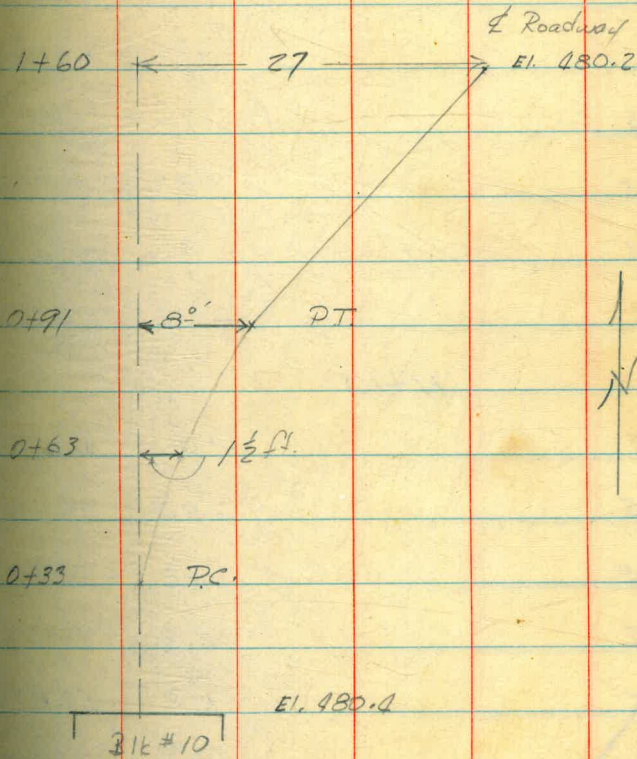 ℄ Roadway
1+60 27 El. 480.2
0+91 8.0' P.T.
0+63 1 1/2 ft.
N
0+33 P.C.
El. 480.4
Blk #10